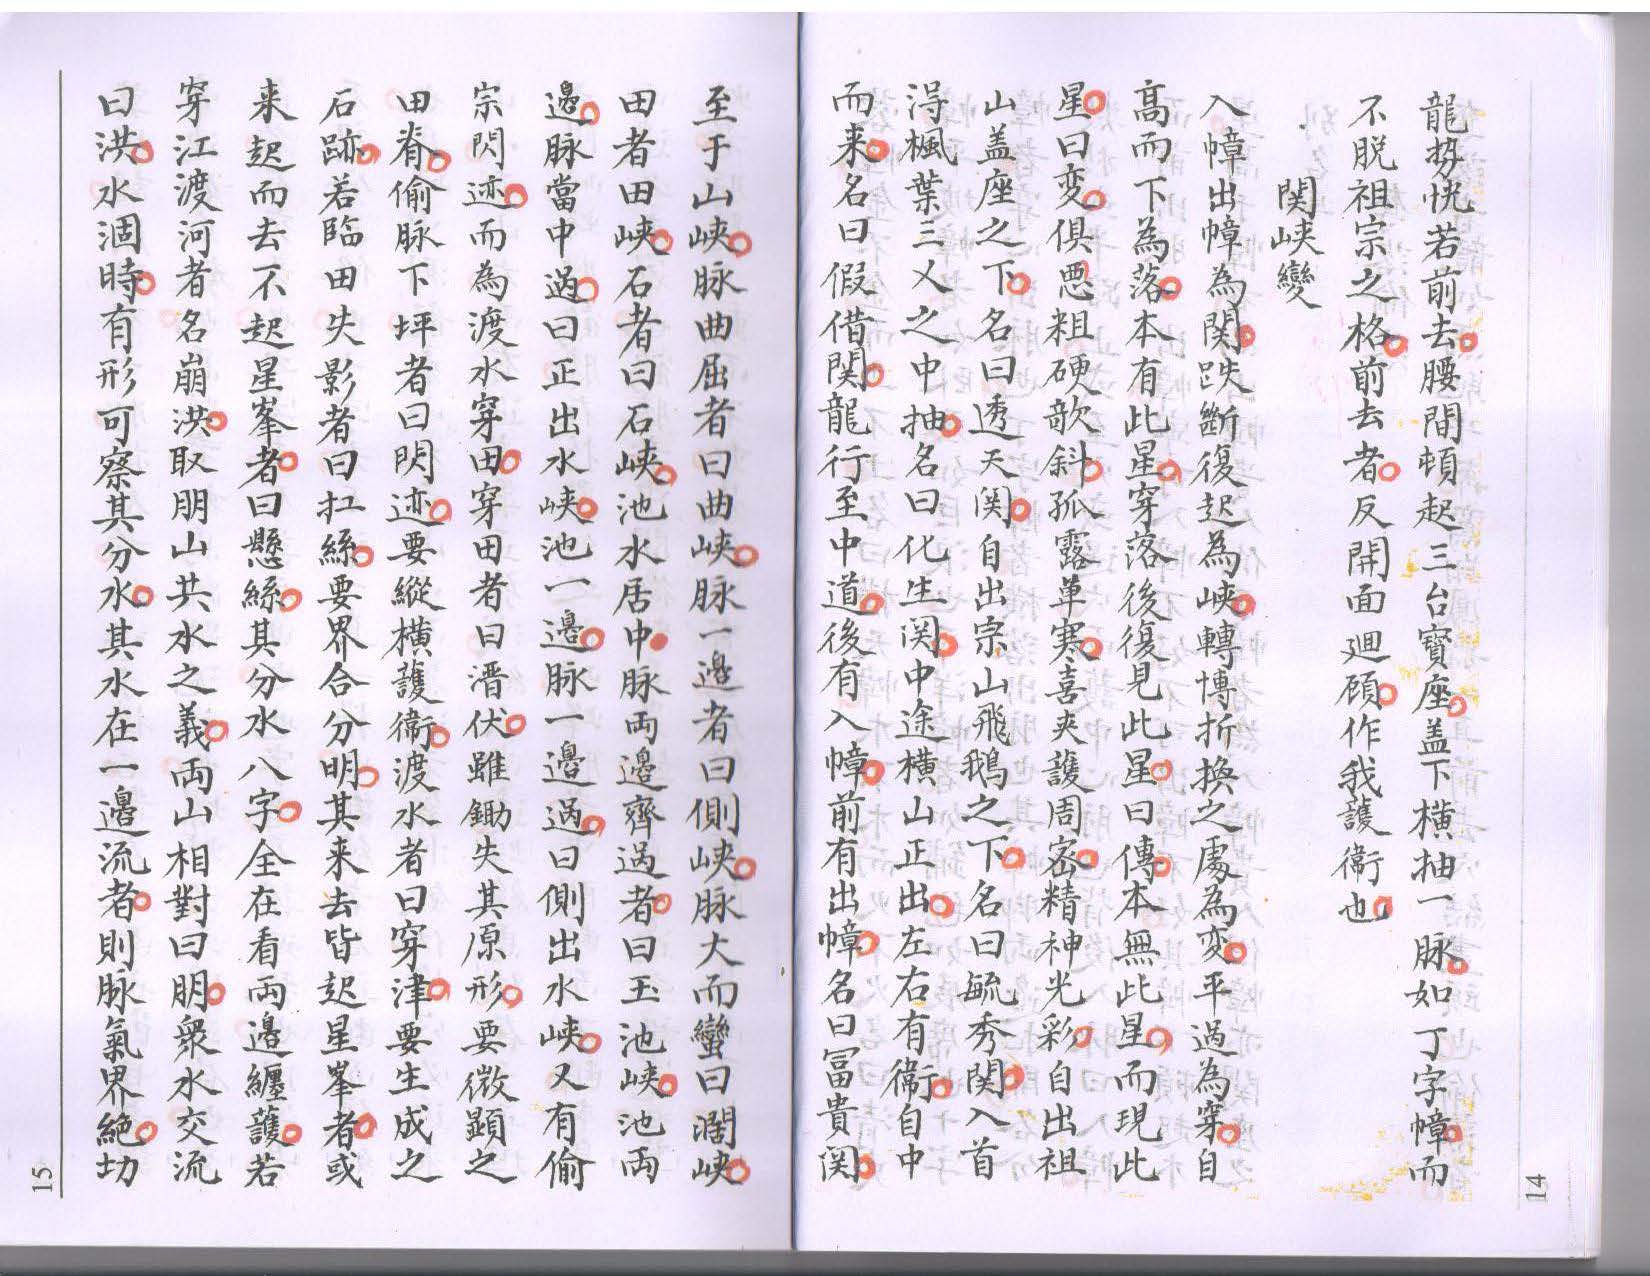 龍勢恍若前去腰間頓起三台寳座盖下橫抽一脉如丁字幛而
不脱祖宗之格前去者反開面廻顧作我護衛也
関峽變
入幛出幛為関跌斷復起為峽轉博折換之處為变平過為穿自
髙而下為落本有此星穿落後復見此星曰傳本無此星而現此
星曰变俱惡粗硬欹斜孤露单寒喜夾護周密精神光彩自出祖
山盖座之下名曰透天関自出宗山飛鵝之下名曰毓秀関入首
淂楓葉三乂之中抽名曰化生関中途橫山正出左右有衛自中
而来名曰假借関龍行至中道後有入幛前有出幛名曰冨貴関
14
至于山峽脉曲屈者曰曲峽脉一邉者曰側峽脉大而蠻曰濶峽
田者田峽石者曰石峽池水居中脉両邉齊過者曰玉池峽池両
邉脉當中過曰正出水峽池一邉脉一邉過曰側出水峽又有偷
宗閃迹而為渡水穿田穿田者曰潛伏雖鋤失其原形要微顯之
田脊偷脉下坪者曰閃迹要縱橫護衛渡水者曰穿津要生成之
石跡若臨田失影者曰扛絲要界合分明其来去皆起星峯者或
来起而去不起星峯者曰懸絲其分水八字全在看両邉纒護若
穿江渡河者名崩洪取朋山共水之義両山相對曰朋衆水交流
曰洪水涸時有形可察其分水其水在一邉流者則脉氣界絕切
15